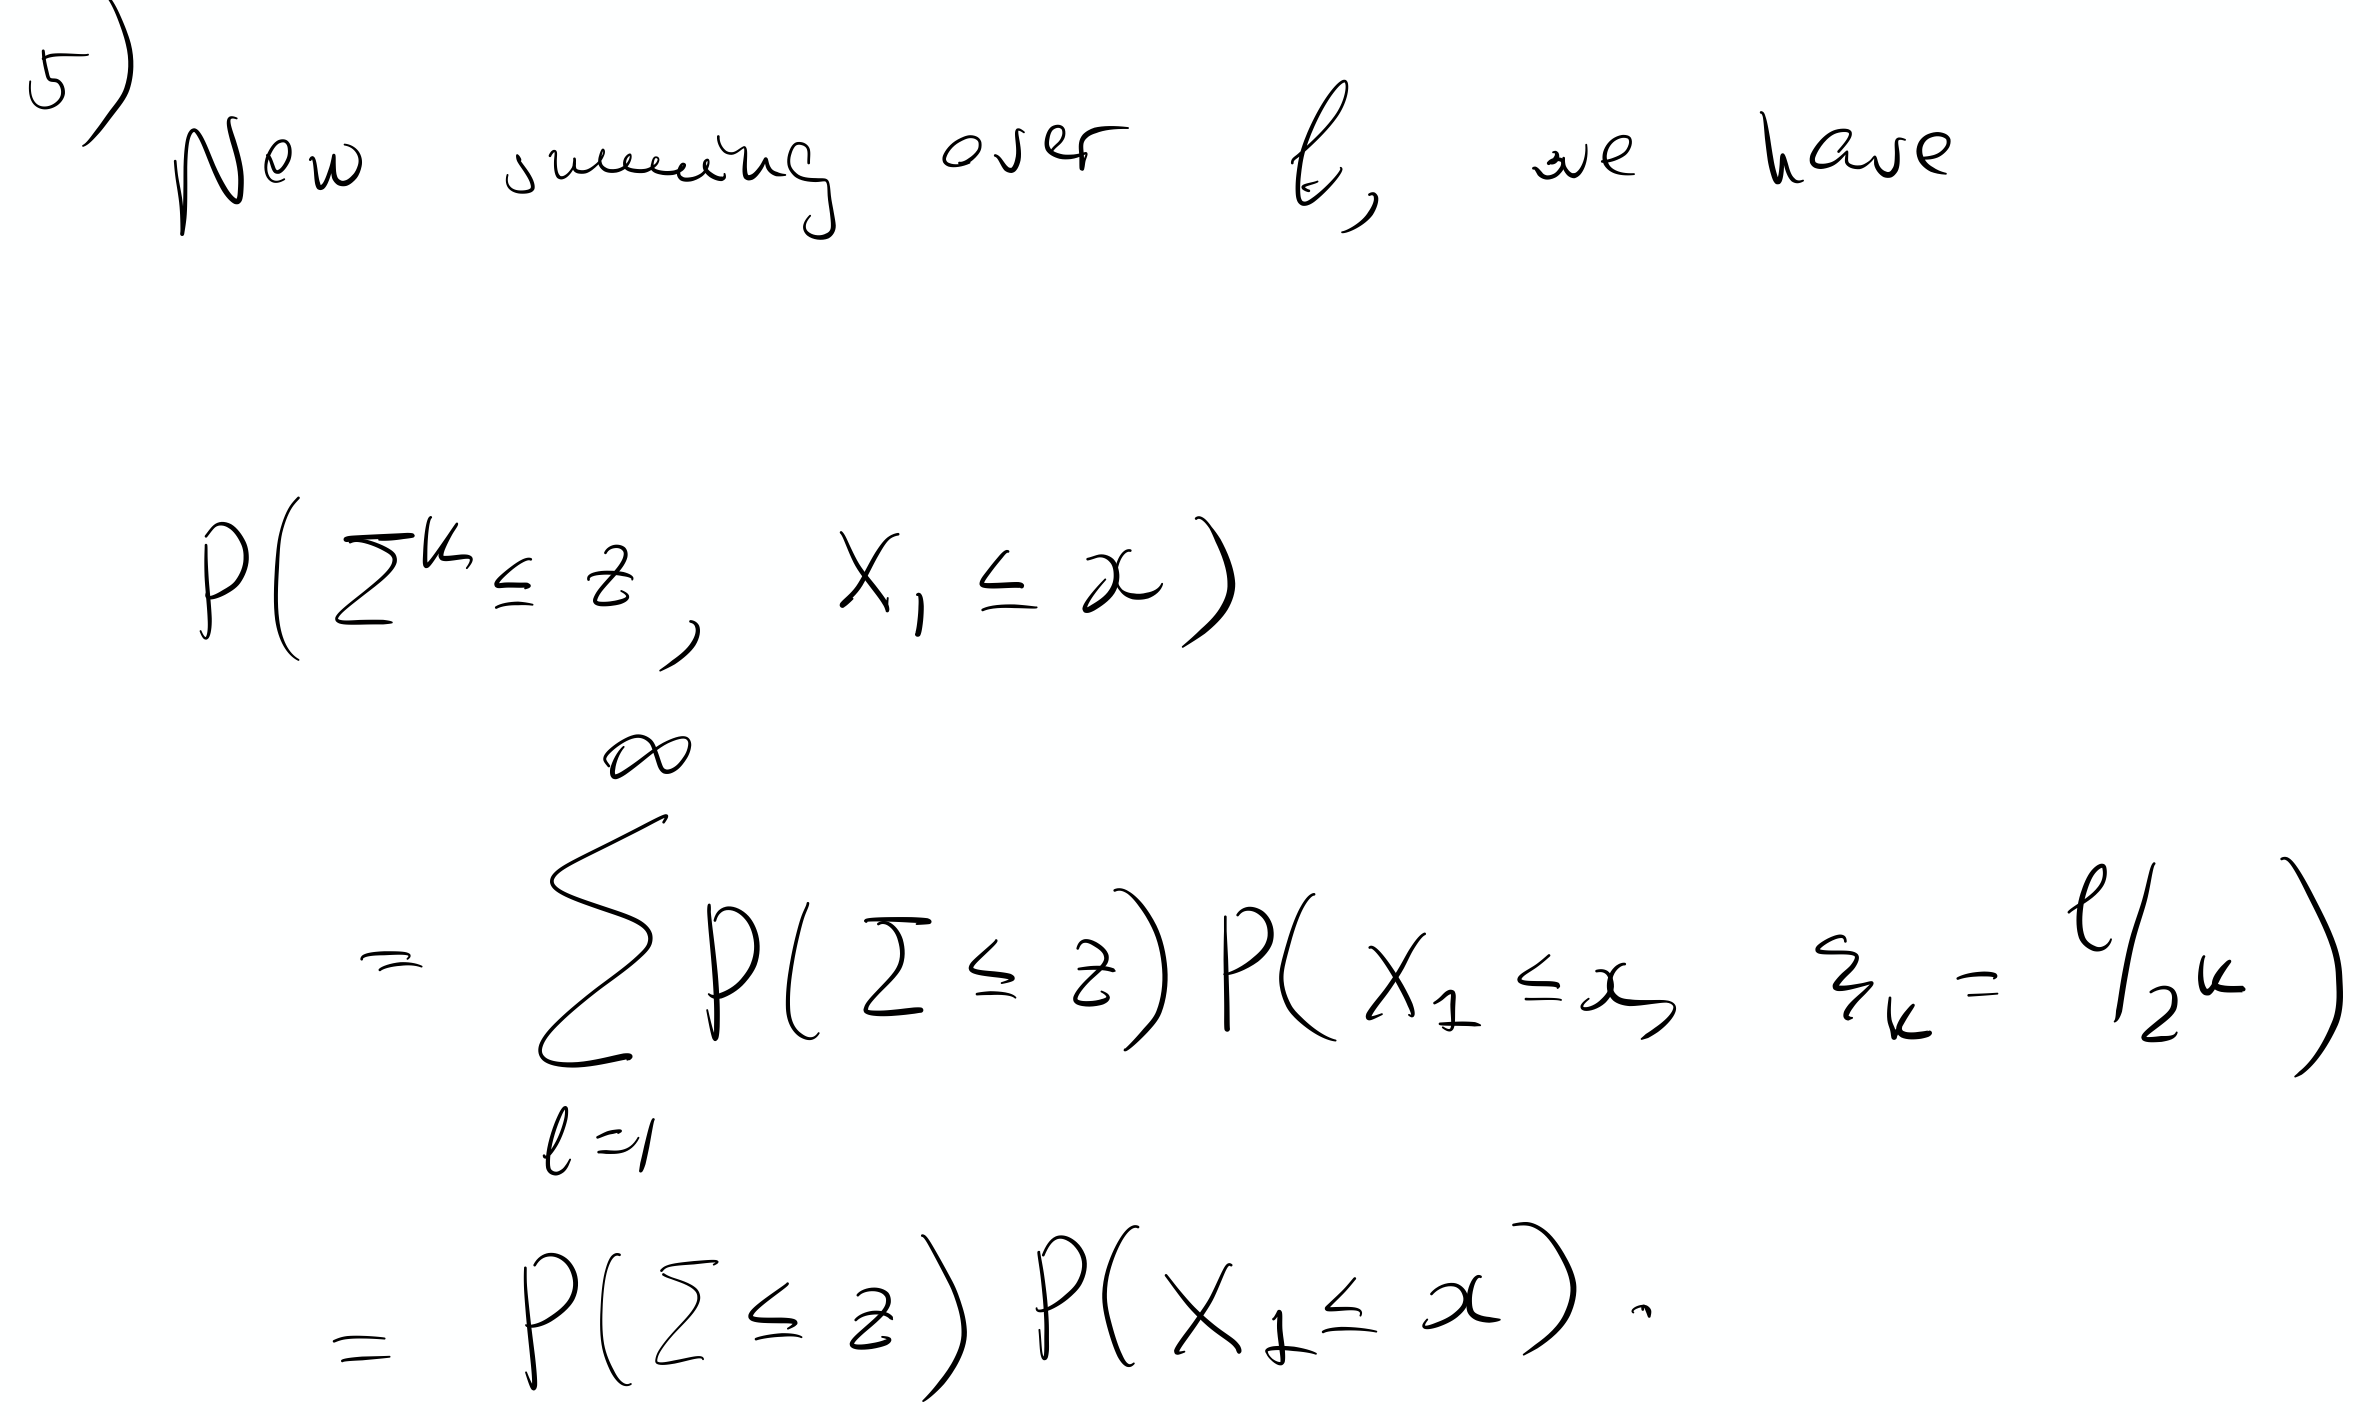 5) Now summing over ℓ, we have
P(Σ^k ≤ z, X_1 ≤ x)
= ∑_{ℓ=1}^{∞} P(Σ ≤ z) P(X_1 ≤ x, ξ_k = ℓ/2^k)
= P(Σ ≤ z) P(X_1 ≤ x).